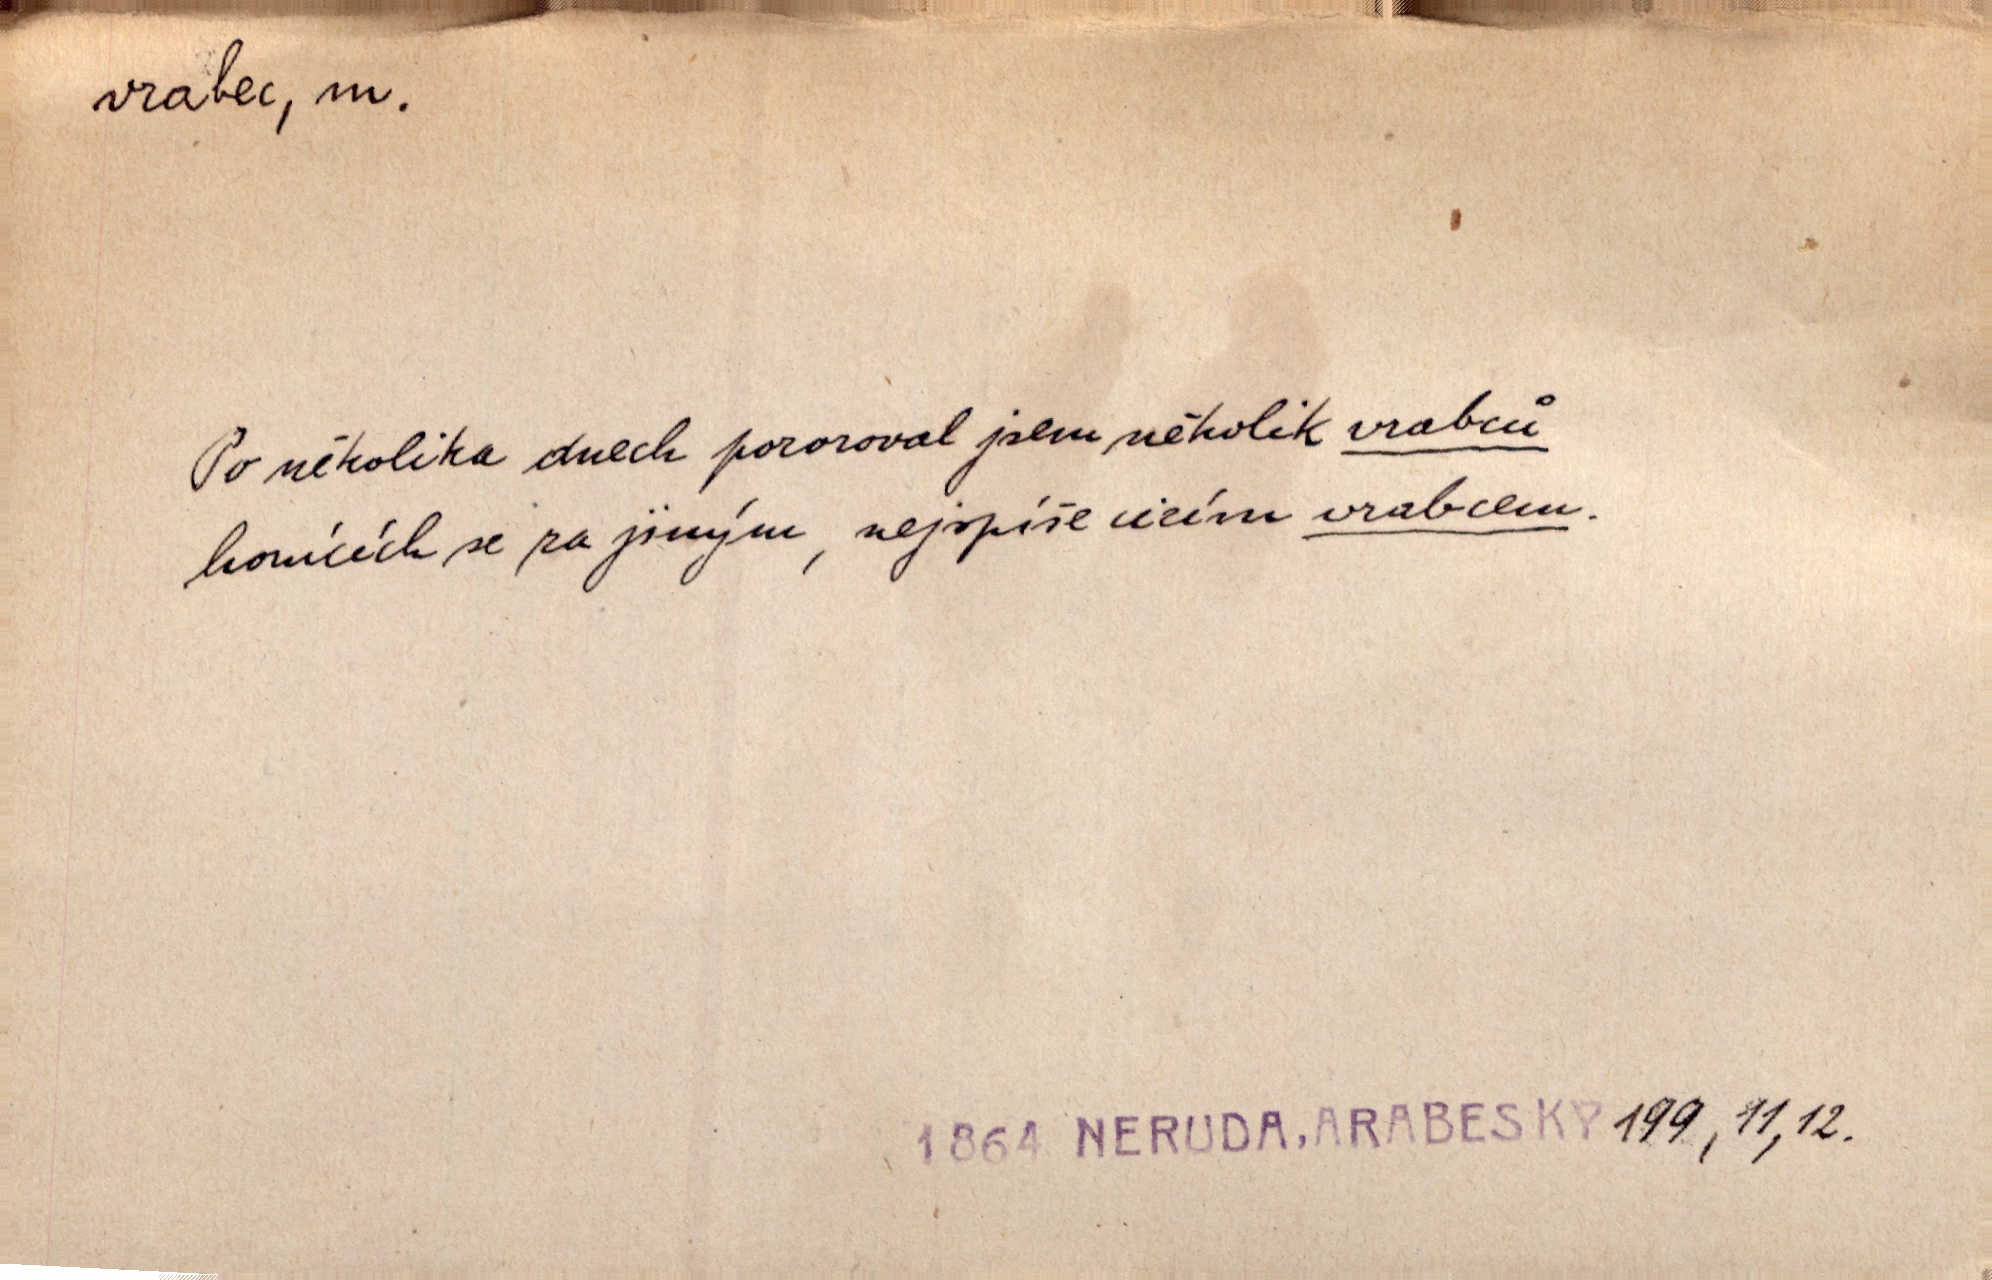 vrabec, m.
Po několika dnech pozoroval jsem několik vrabců
honících se za jiným, nejspíše cizím vrabcem.
1864 NERUDA, ARABESKY 199, 11, 12.